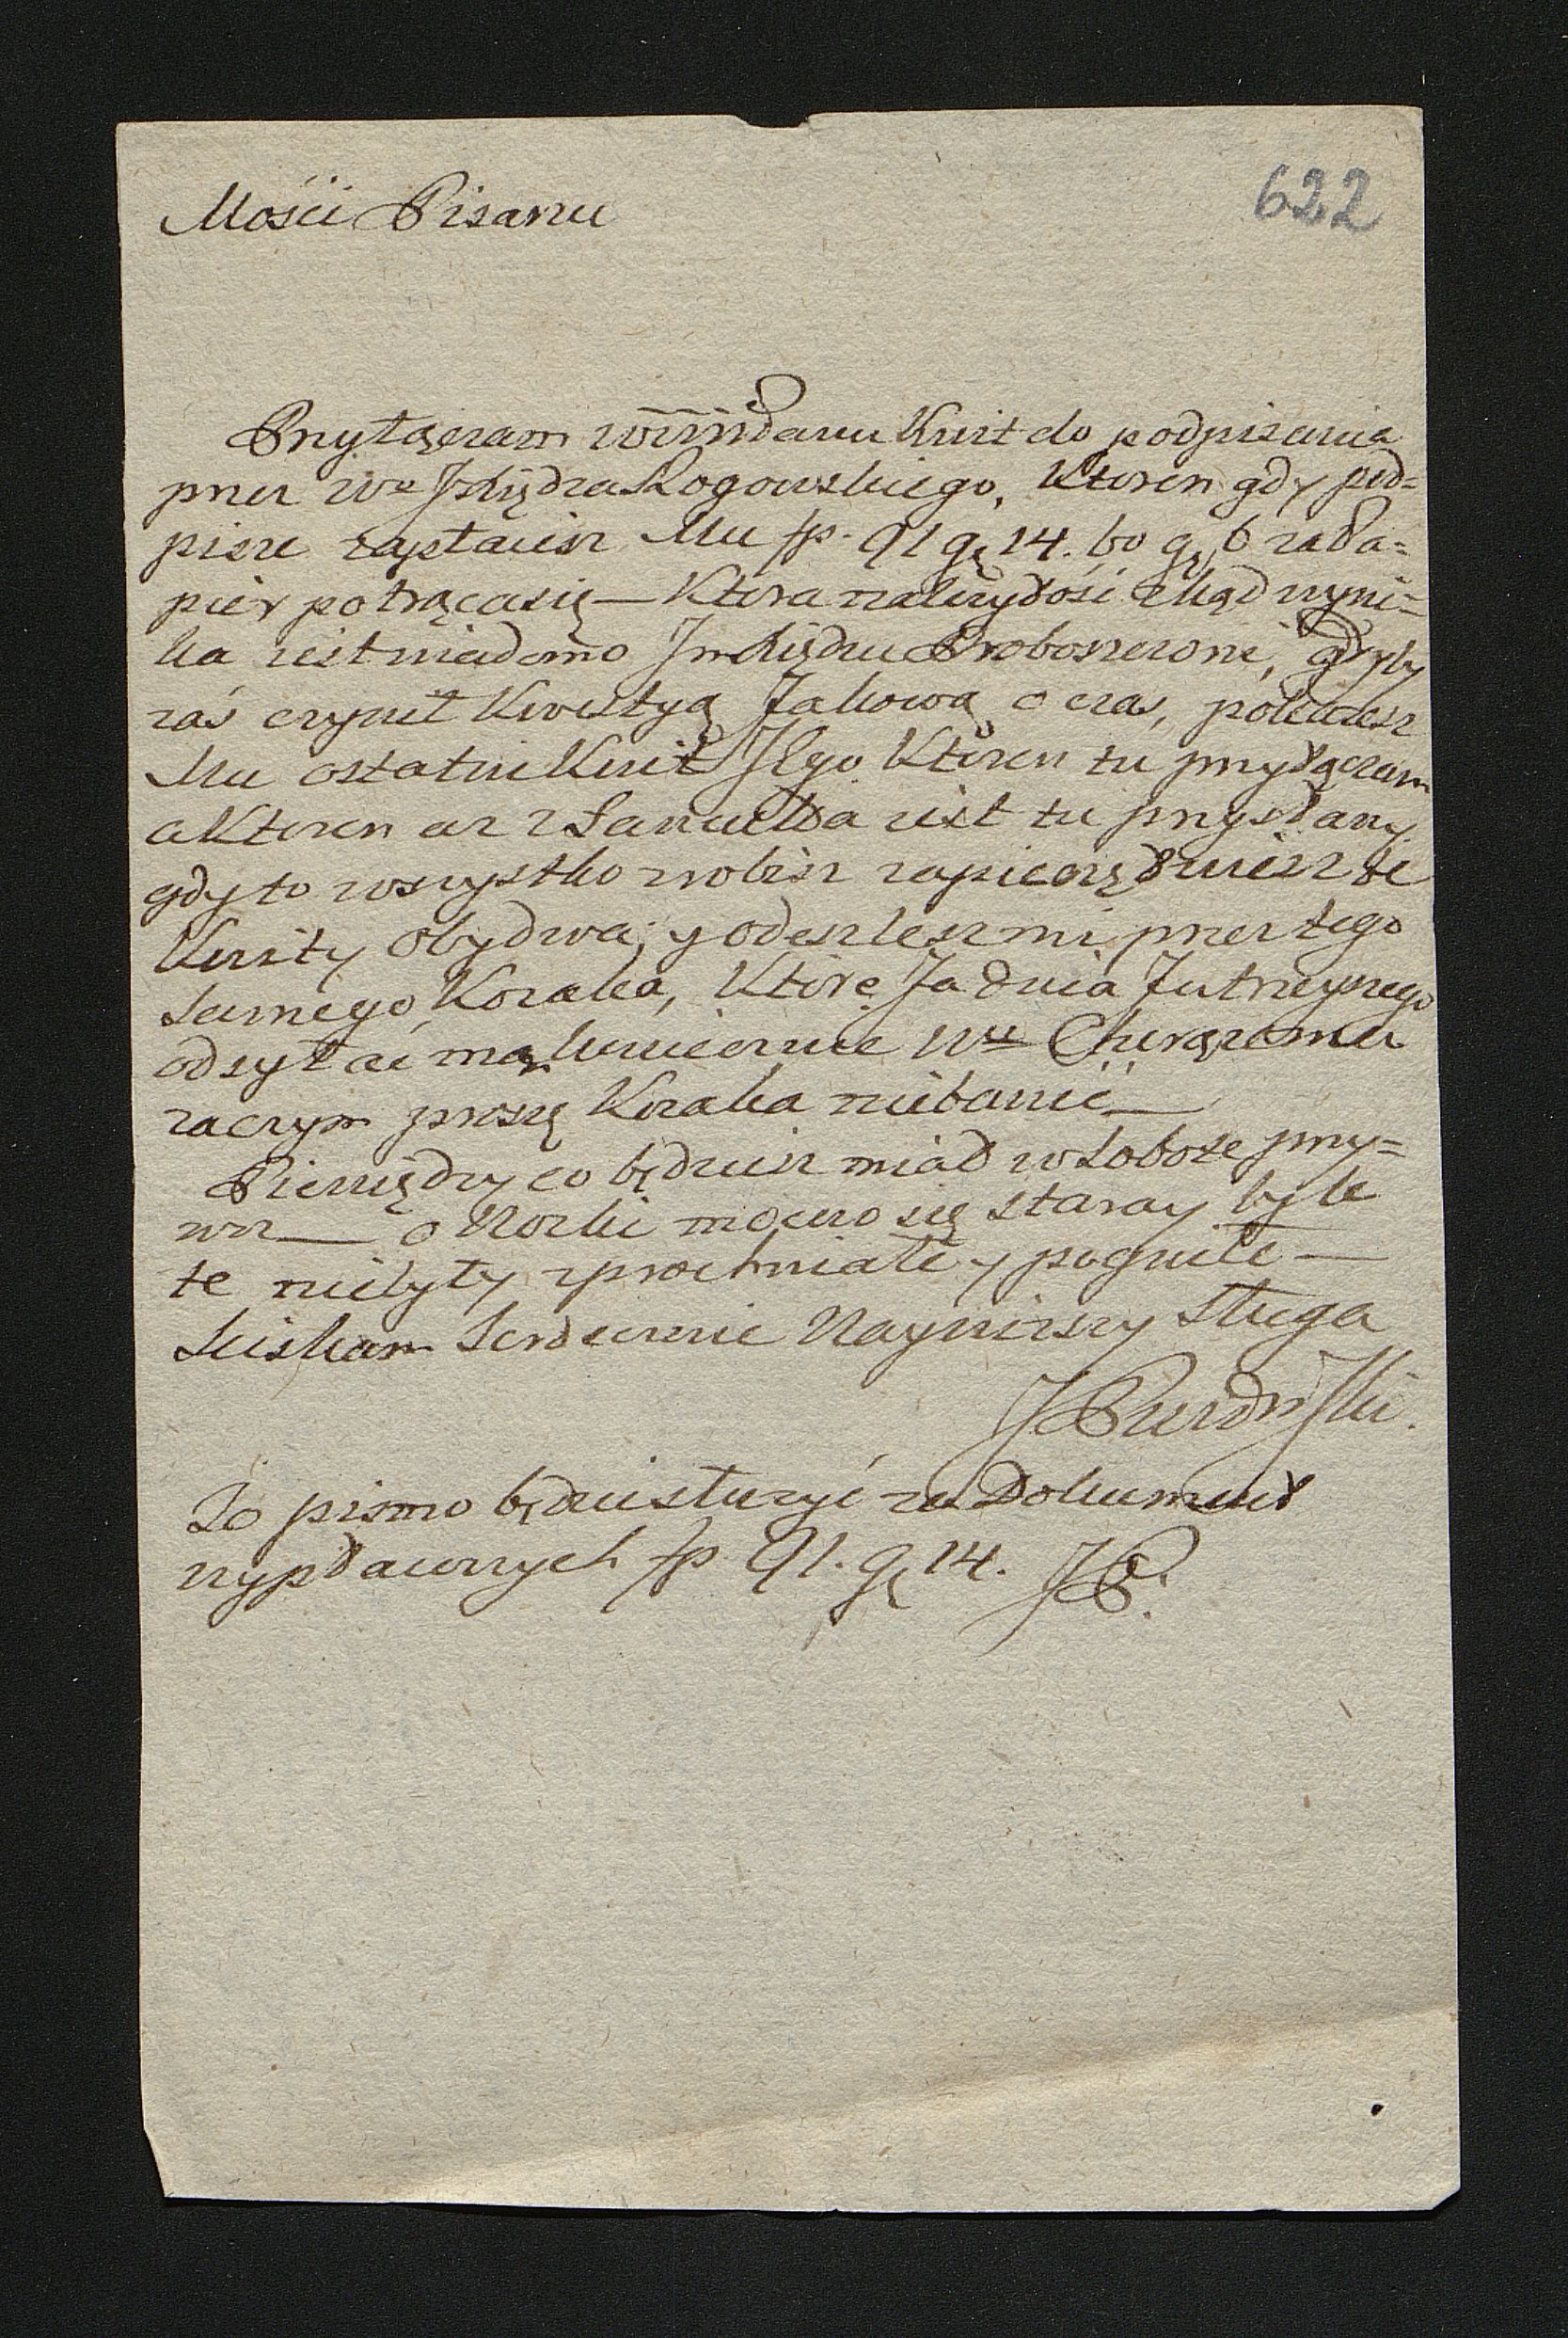 622
Mości Pisarzu
Przyłączam Kwit do podpisania
przez Wo JXiędza Rogowskiego, Ktoren gdy pod=
pisze zapłacisz Mu fp. 91 gę 14. bo gę 6 za Pa=
pier potrąca się — Ktora należytość zkąd wyni=
ka iest wiadomo Jm Xiędzu Proboszczowi, gdyby
zaś czynił Kwestyą Jakową o czas, pokażesz
Mu ostatni Kwit Jego Ktoren tu przyłączam
a Ktoren az z Sanculka iest tu przysłany.
gdy to wszystko zrobisz zapieczętuiesz te
Kwity obydwa, y odeszlesz mi przez tego
samego Kozaka, Ktore Ja dnia Jutrzeyszego
odsyłać mam koniecznie Wu
zaczym proszę Kozaka niebawić —
Pieniędzy co będziesz miał w Sobotę przy=
wież — o Worki mocno się staray byle
te niebyły zprochniałe y pogniłe —
Sciskam Serdecznie Nayniższy Sługa
To pismo będzie służyć za Dokument
wypłaconych fp 91. gę 14. JP.